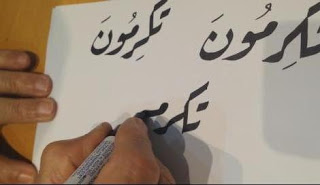 تَكْرِمُونَ تَكْرِمُونَ
تكرمـ